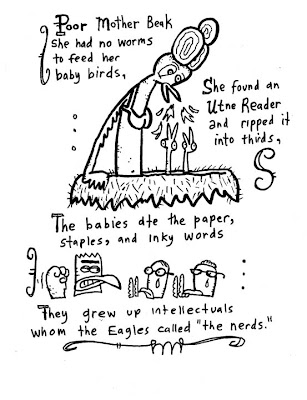 Poor Mother Beak
she had no worms
to feed her
baby birds,
She found an
Utne Reader
and ripped it
into thirds,
The babies ate the paper,
staples, and inky words
They grew up intellectuals
whom the Eagles called "the nerds."